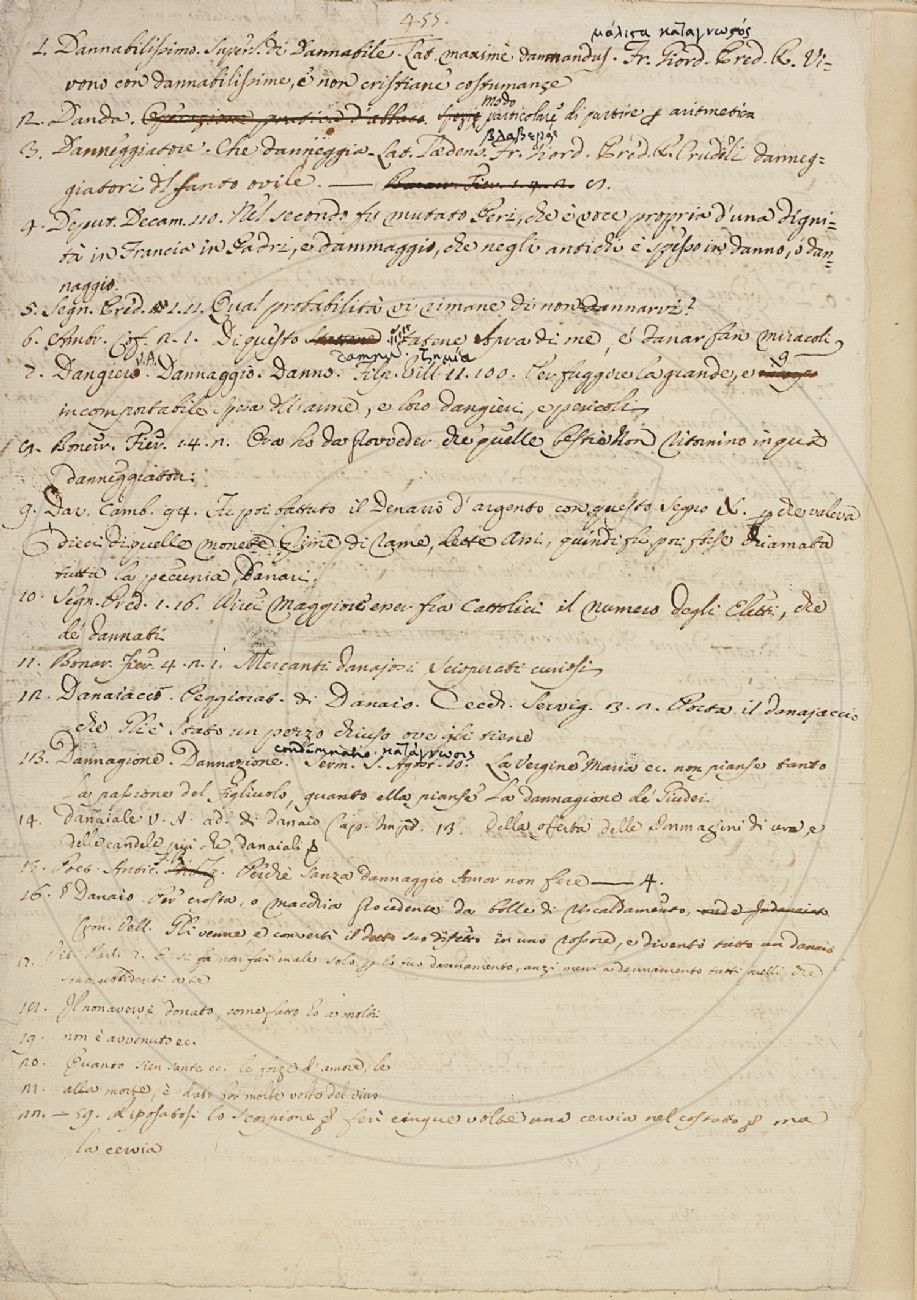 455.
μάλιϛα καταγνωϛός
1. Dannabilissimo. Superl. di Dannabile. Lat. maximè damnandus. Fr. Giord. Pred. R. Vi=
vono con dannabilissime, e non cristiane costumanze
2. Danda. Operazione pratica d'abbaco. modo particolare di partire aritmetica
βλαβερός
3. Danneggiatore. Che danneggia. Lat. Lædens. Fr. Giord. Pred. R. Crudeli danneg=
giatori del santo ovile. — Bonar. Fier. 1. 4. 2.
4. Deput. Decam. 110. Nel secondo fu mutato Peri, che è voce propria d'una digni=
tà in Francia in Padri, e dammaggio, che negli antichi è spesso in danno, o dan=
naggio.
5. Segn. Pred. 1. 11. Qual probabilità vi rimane di non dannarvi?
6. Ambr. Cof. 2. 1. Di questo statene sopra di me, e danar fan miracoli
7. Dangiero V.A. Dannaggio. Danno. ζημία Filip. Vill. 11. 100. Per fuggire la grande, e
incomportabile spesa dell'arme, e loro dangieri, e pericoli
Bonar. Fier. 1. 4. 2. Ora ho da provveder che quelle bestie Non ritornino in quà
danneggiatrici.
9. Dav. Camb. 94. Fu poi battuto il Denaro d'argento con questo segno X. che valeva
dieci di quelle monete prime di rame, dette Assi, quindi fu poi forse chiamata
tutta la pecunia, Danari.
10. Segn. Pred. 1. 16. maggiore esser fra Cattolici il numero degli Eletti, che
de' dannati
11. Bonar. Fier. 4. 2. 1. Mercanti danajosi scioperati curiosi
12. Danaiaccio. Peggiorat. di Danaio. Cecch. Servig. 3. 2. Porta il danajaccio
che gli è stato un pezzo chiuso ove gli tiene
condemnatio. κατάγνωσις
13. Dannagione. Dannazione. Serm. S. Agost. 10. La Vergine Maria ec. non pianse tanto
la passione del figliuolo, quanto ella pianse la dannagione de' Giudei
14. Danaiale V. A. ad. di danaio Cap. Impr. 13. Della offerta delle Immagini di cera, e
delle candele più che danaiali
15. Poet. Antic. Perchè sanza dannaggio Amor non fere — 4.
16. Danaio. Per crosta, o macchia procedente da bolle di riscaldamento,
Cron. Vell. Gli venne, e convertì il detto suo difetto in uno rossore, e diventò tutto un danaio
17. E se fa non fai male solo lo tuo dannamento, anzi meni a dannamento tutti quelli, che
sono ubbidienti a te
Il non avere donato, come fatto hò a molti
19. non è avvenuto ec.
20. Quanto sien sante ec. le forze d'amore, le
21. alla morte, è stato per molte volte del vivo
22. — 59. Riposatosi lo scorpione ferì cinque volte una cervia nel costato ma
la cervia